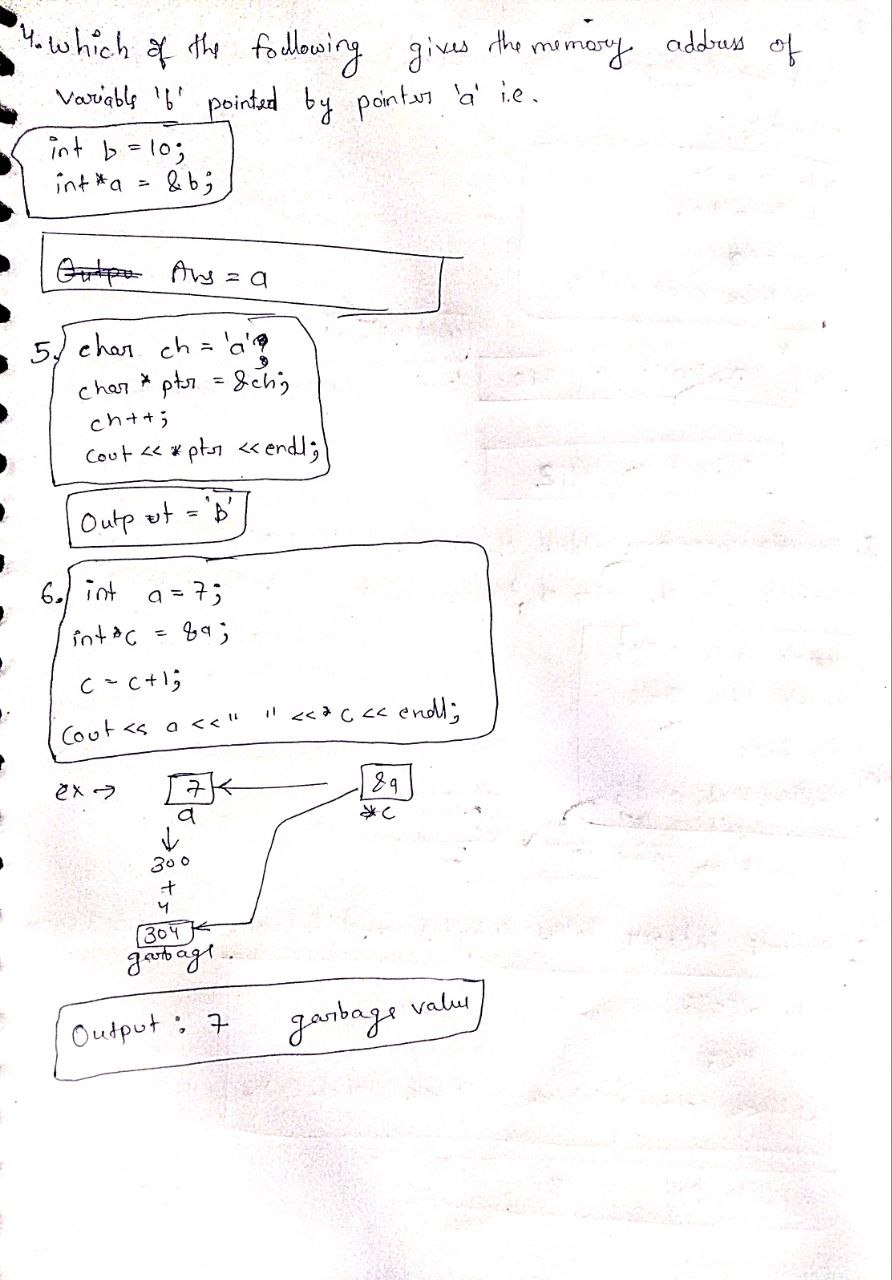 4. which of the following gives the memory address of
variable 'b' pointed by pointer 'a' i.e.
int b = 10;
int *a = &b;
Ans = a
5. char ch = 'a';
char * ptr = &ch;
ch++;
cout << *ptr << endl;
Output = 'b'
6. int a = 7;
int *c = &a;
c = c+1;
cout << a << " " << *c << endl;
ex → 7 &a
a *c
300
+
4
304
garbage.
Output : 7 garbage value